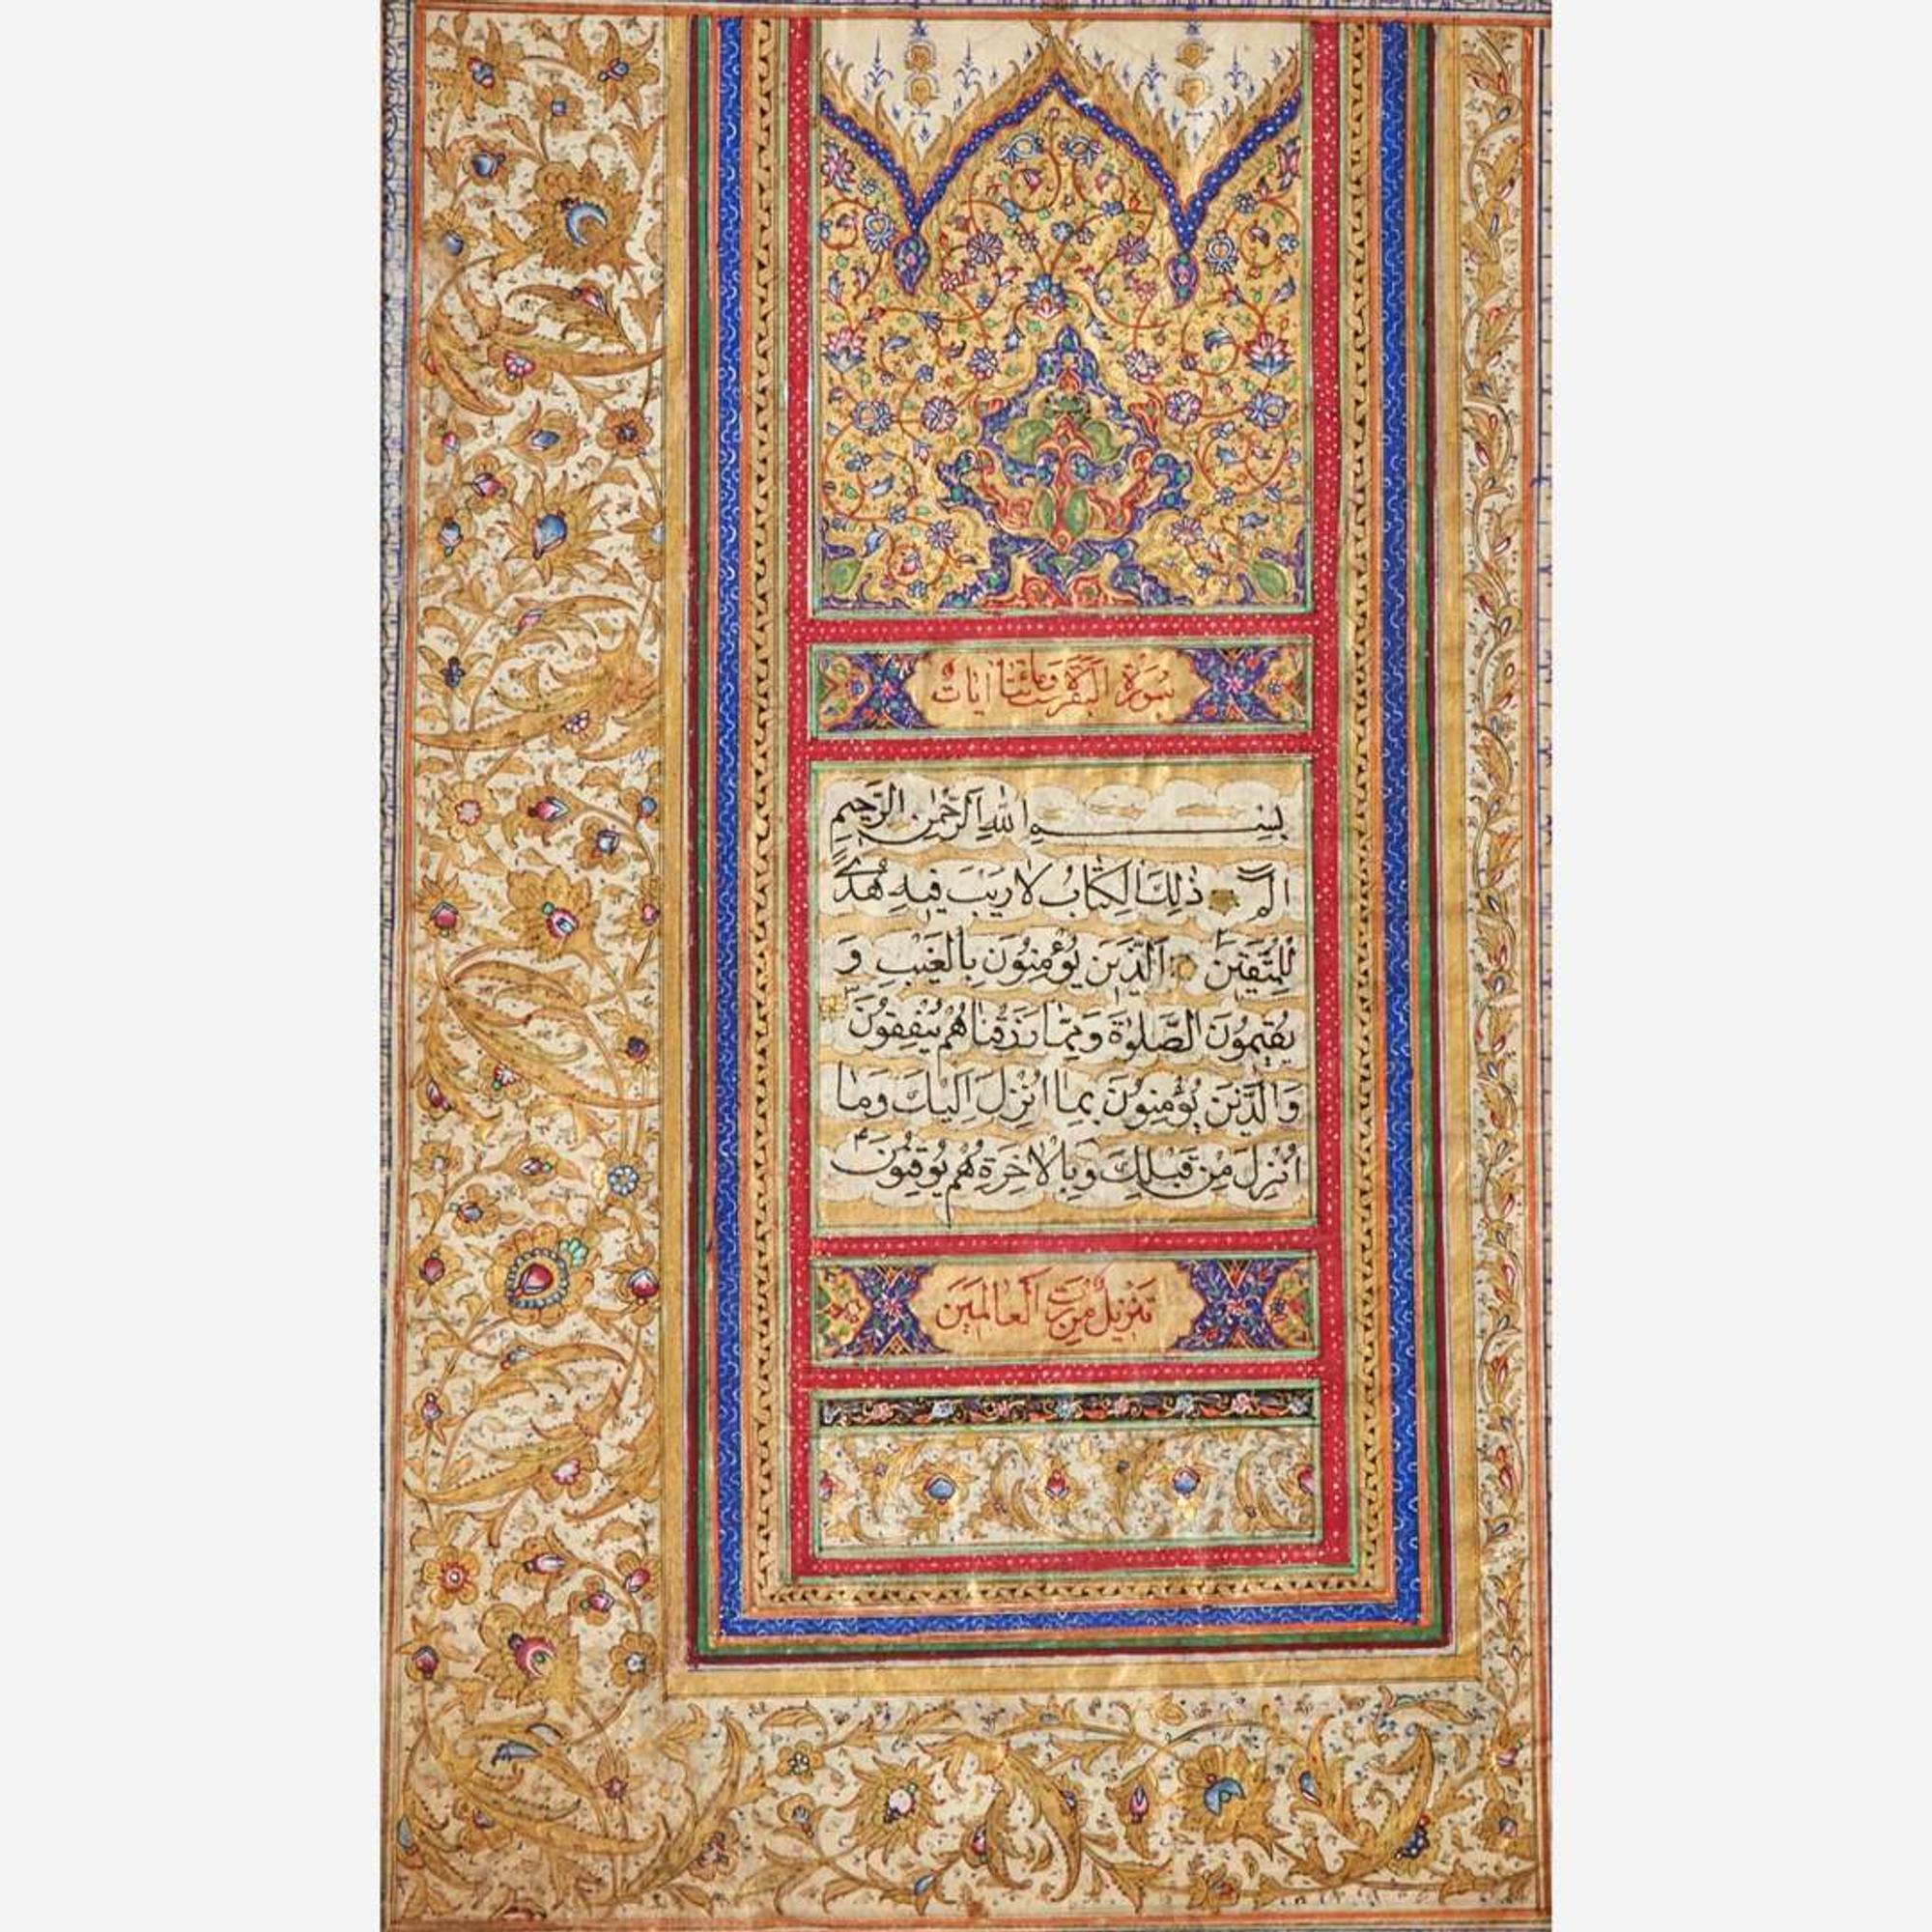 سُورَةُ البَقَرَة مَائتَا ايَات
بِسْمِ اللّٰهِ الرَّحْمٰنِ الرَّحِيمِ
الم ذٰلِكَ الْكِتَابُ لَا رَيْبَ فِيهِ هُدًى
لِلْمُتَّقِينَ الَّذِينَ يُؤْمِنُونَ بِالْغَيْبِ وَ
يُقِيمُونَ الصَّلٰوةَ وَمِمَّا رَزَقْنَاهُمْ يُنْفِقُونَ ٣
وَالَّذِينَ يُؤْمِنُونَ بِمَا اُنْزِلَ اِلَيْكَ وَمَا
اُنْزِلَ مِنْ قَبْلِكَ وَبِالْاٰخِرَةِ هُمْ يُوقِنُونَ ۴
تَنْزِيلٌ مِنْ رَبِّ الْعَالَمِينَ